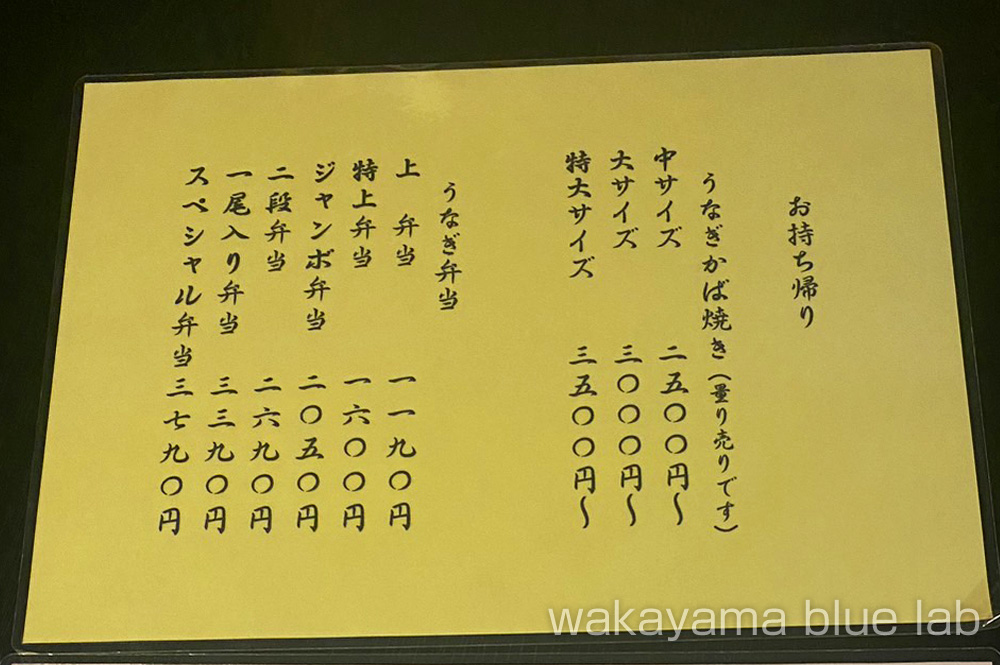 お持ち帰り
うなぎかば焼き(量り売りです)
中サイズ 二五〇〇円～
大サイズ 三〇〇〇円～
特大サイズ 三五〇〇円～
うなぎ弁当
上 弁当 一一九〇円
特上弁当 一六〇〇円
ジャンボ弁当 二〇五〇円
二段弁当 二六九〇円
一尾入り弁当 三三九〇円
スペシャル弁当 三七九〇円
wakayama blue lab